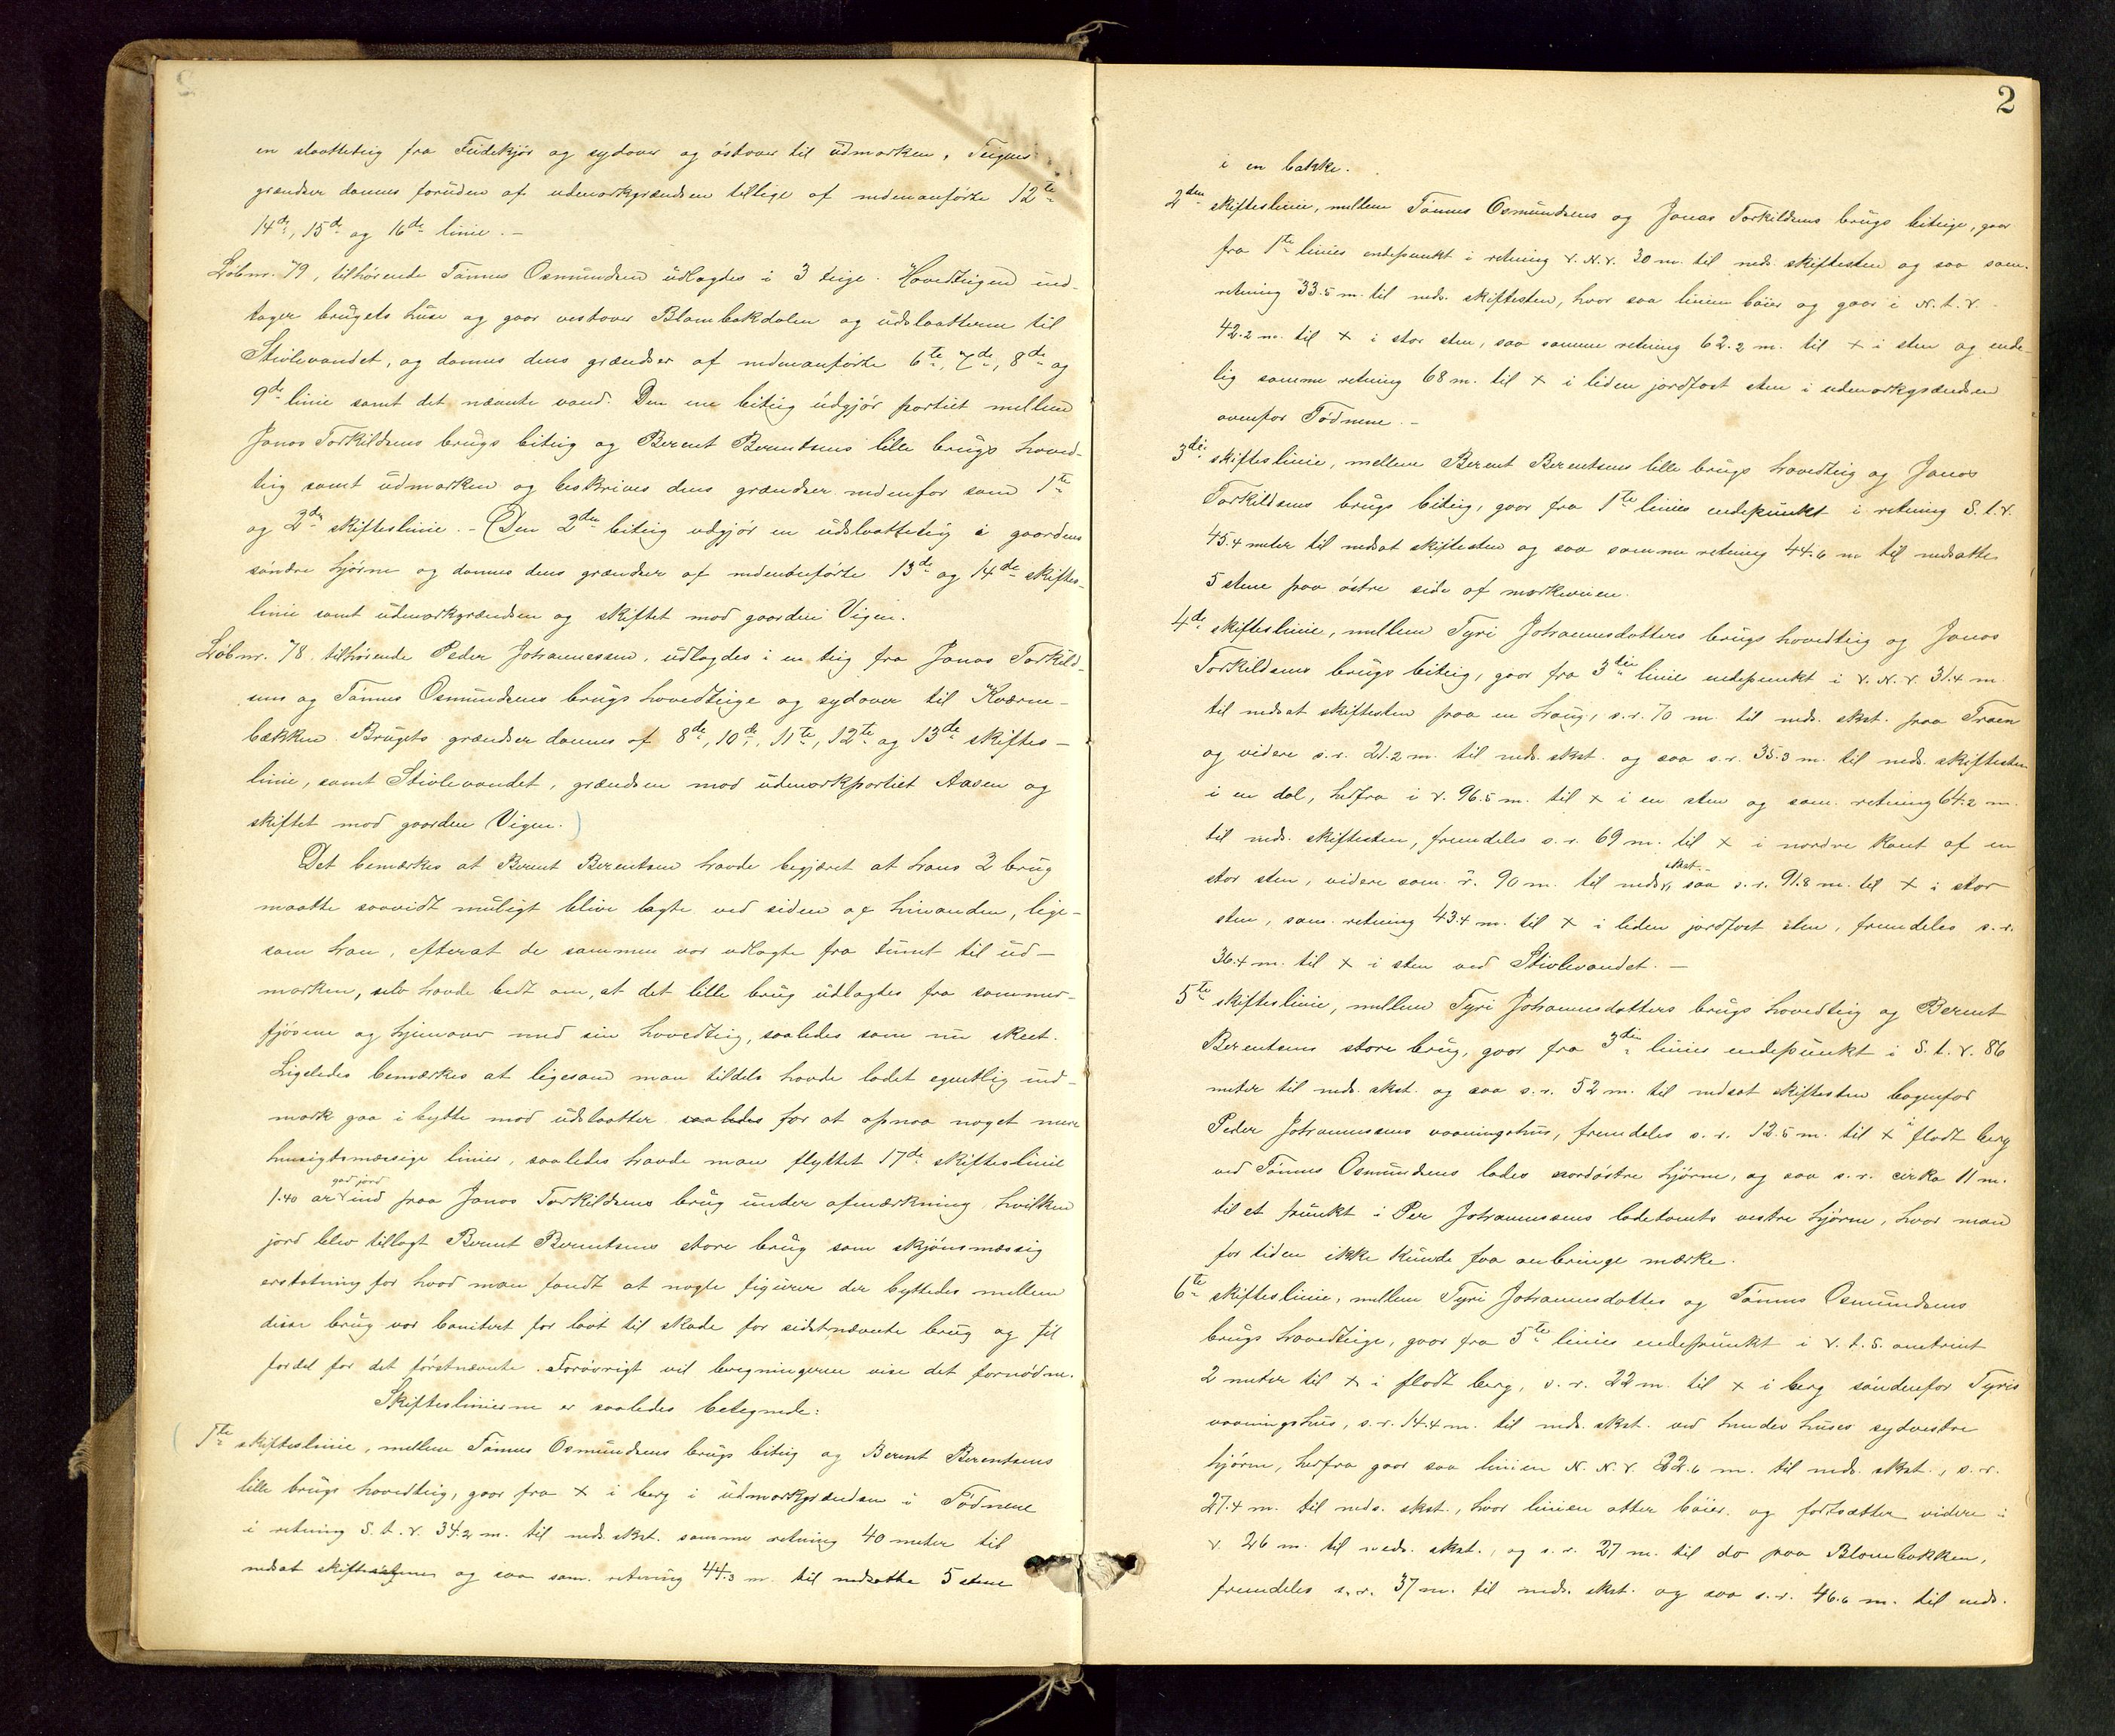 en slaatteteig fra Fiidekjær og sydover og østover til udmarken, Teigens
grændser dannes foruden af udmarkgrændsen tillige af nedenanførte 12te
14de, 15de og 16de linie. -
Løbnr. 79, tilhørende Tønnes Osmundsen udlagdes i 3 teige. Hovedteigen ind-
tager brugets huse og gaar vestover Blombakdalen og udslaatterne til
Stivlevandet, og dannes dens grændser af nedenanførte 6te, 7de, 8de og
9de linie samt det nævnte vand. Den ene biteig udgjør partiet mellem
Jonas Torkildsens brugs biteig og Berent Berentsens lille brugs hoved-
teig samt udmarken og beskrives dens grændser nedenfor som 1te
og 2den skifteslinie. - Den 2den biteig udgjør en udslaatteteig i gaardens
søndre hjørne og dannes dens grændser af nedenanførte 13de og 14de skiftes-
linie samt udmarkgrændsen og skiftet mod gaarden Vigen.
Løbnr. 78, tilhørende Peder Johannessen, udlagdes i en teig fra Jonas Torkild-
sens og Tønnes Osmundsens brugs hovedteige og sydover til Kværne-
bækken. Brugets grændser dannes af 8de, 10de, 11te, 12te og 13de skiftes-
linie, samt Stivlevandet, grændsen mod udmarkpartiet Aasen og
skiftet mod gaarden Vigen.
Det bemærkes at Berent Berentsen havde begjæret at hans 2 brug
maatte saavidt muligt blive lagte ved siden af hinanden, lige-
som han, efterat de sammen var udlagte fra tunet til ud-
marken, selv havde bedt om, at det lille brug udlagtes fra sommer-
fjøsene og hjemover med sin hovedteig, saaledes som nu skeet.
Ligeledes bemærkes at ligesom man tildels havde ladet egentlig ind-
mark gaa i bytte mod udslaatter saaledes for at opnaa noget mere
hensigtsmæssige linier, saaledes havde man flyttet 17de skifteslinie
1.40 ar god jord ind paa Jonas Torkildsens brug under afmærkning, hvilken
jord blev tillagt Berent Berentsens store brug som skjønsmæssig
erstatning for hvad man fandt at nogle figurer der byttedes mellem
disse brug var boniteret for lavt til skade for sidstnævnte brug og til
fordel for det førstnævnte. Forøvrigt vil beregningerne vise det fornødne.
Skifteslinierne er saaledes betegnede:
1te skifteslinie, mellem Tønnes Osmundsens brugs biteig og Berent Berentsens
lille brugs hovedteig, gaar fra × i berg i udmarkgrændsen i Tødnene
i retning S. t. V. 34.2 m. til neds. skst. samme retning 40 meter til
nedsat skiftesten og saa sam. retning 44.3 m. til nedsatte 5 stene
2
i en bakke.
2den skifteslinie, mellem Tønnes Osmundsens og Jonas Torkildsens brugs biteige, gaar
fra 1te linies endepunkt i retning V. N. V. 30 m. til neds. skiftesten og saa sam.
retning 33.5 m. til neds. skiftesten, hvor saa linien bøier og gaar i N. t. V.
42.2 m. til × i stor sten, saa samme retning 62.2 m. til × i sten og ende-
lig samme retning 68 m. til × i liden jordfast sten i udmarkgrændsen
ovenfor Tødnene. -
3die skifteslinie, mellem Berent Berentsens lille brugs hovedteig og Jonas
Torkildsens brugs biteig, gaar fra 1te linies endepunkt i retning S. t. V.
45.4 meter til nedsat skiftesten og saa samme retning 44.6 m til nedsatte
5 stene paa østre side af markveien.
4de skifteslinie, mellem Tyri Johannesdatters brugs hovedteig og Jonas
Torkildsens brugs biteig, gaar fra 3die linies endepunkt i V. N. V. 31.4 m.
til nedsat skiftesten paa en haug, s. r. 70 m. til neds. skst. paa Traen
og videre s. r. 21.2 m. til neds. skst. og saa s. r. 35.3 m. til neds. skiftesten
i en dal, herfra i V. 96.5 m. til × i en sten og sam. retning 64.2 m.
til neds. skiftesten, fremdeles s. r. 69 m. til × i nordre kant af en
stor sten, videre sam. r. 90 m. til neds. skst. saa s. r. 91.8 m. til × i stor
sten, sam. retning 43.4 m. til × i liden jordfast sten, fremdeles s. r.
36.4 m. til × i sten ved Stivlevandet. -
5te skifteslinie, mellem Tyri Johannesdatters brugs hovedteig og Berent
Berentsens store brug, gaar fra 3die linies endepunkt i S. t. V. 86
meter til neds. skst. og saa s. r. 52 m. til nedsat skiftesten bagenfor
Peder Johannessens vaaningshus, fremdeles s. r. 12.5 m. til × i fladt berg
ved Tønnes Osmundsens lades nordøstre hjørne, og saa s. r. cirka 11 m.
til et punkt i Per Johannessens ladetomts vestre hjørne, hvor man
for tiden ikke kunde faa anbringe mærke.
6te skifteslinie, mellem Tyri Johannesdatter og Tønnes Osmundsens
brugs hovedteige, gaar fra 5te linies endepunkt i V. t. S. omtrent
2 meter til × i fladt berg, s. r. 22 m. til × i berg søndenfor Tyris
vaaningshus, s. r. 14.4 m. til neds. skst. ved hendes huses sydvestre
hjørne, herfra gaar saa linien N. N. V. 22.6 m. til neds. skst., s. r.
27.4 m. til neds. skst., hvor linien atter bøier og fortsætter videre i
V. 26 m. til neds. skst., og s. r. 27 m. til do paa Blombakken,
fremdeles s. r. 37 m. til neds. skst. og saa s. r. 46.6 m. til neds.